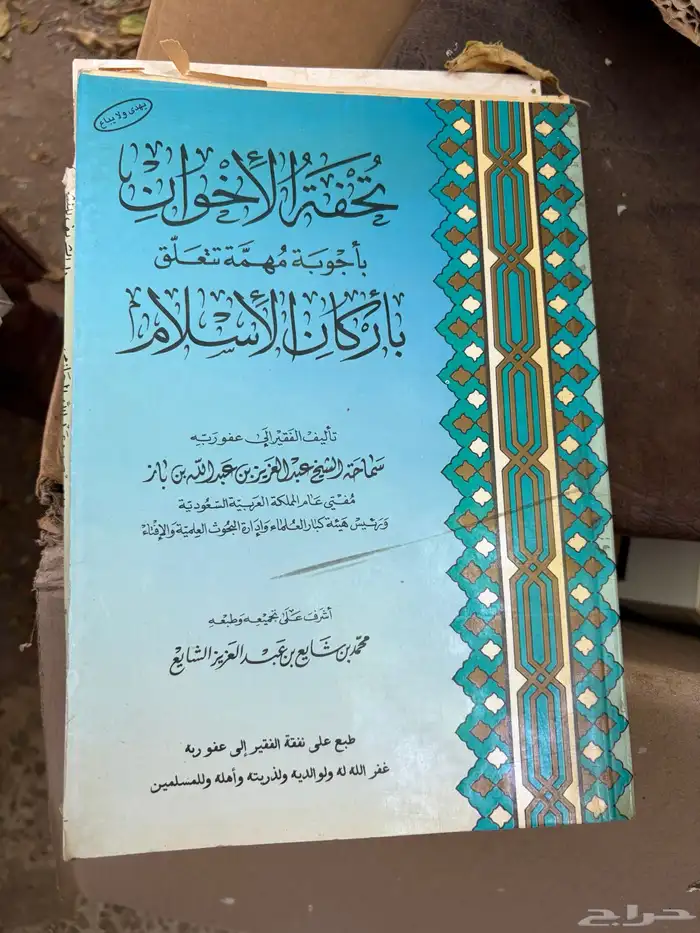 يهدى ولا يباع
تُحْفَةُ الأَخْوَانِ
بأجوبة مُهمَّة تتعلّق
بأركَانِ الأسْلَام
تأليف الفقير إلى عفو ربه
سماحة الشيخ عبد العزيز بن عبد الله بن باز
مُفتي عام المملكة العربية السعودية
ورئيس هيئة كبار العُلماء وإدارة البحوث العلمية والإفتاء
أشرف على تجميعه وطبعه
محمد بن شايع بن عبد العزيز الشايع
طبع على نفقة الفقير إلى عفو ربه
غفر الله له ولوالديه ولذريته وأهله وللمسلمين
حراج